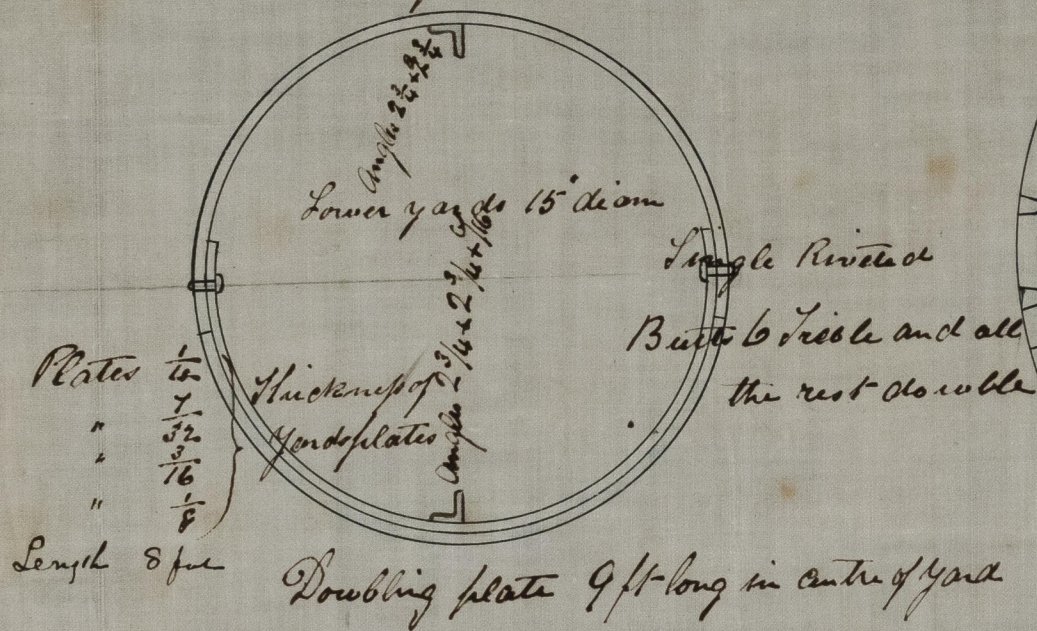 Angles 2 3/4 × 2 3/4
Lower yards 15" diam
Angles 2 3/4 × 2 3/4 × 6/16
Single Riveted
Butts 6 Treble and all
the rest dowble
Plates
" 7/32
" 3/16
" 1/8
Thickness of
Yardsplates
Length 8 feet
Dowbling plate 9 ft long in centre of Yard